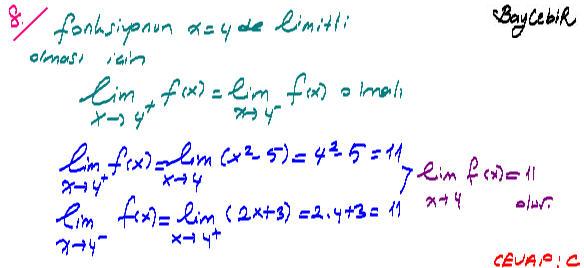 8. fonksiyonun x=4 de limitli
BayCebir
olması için
lim x→4⁺ f(x) = lim x→4⁻ f(x) olmalı
lim x→4⁺ f(x) = lim x→4 (x²-5) = 4²-5 = 11
lim x→4⁻ f(x) = lim x→4⁺ (2x+3) = 2.4+3 = 11
lim x→4 f(x) = 11
olur.
CEVAP: C